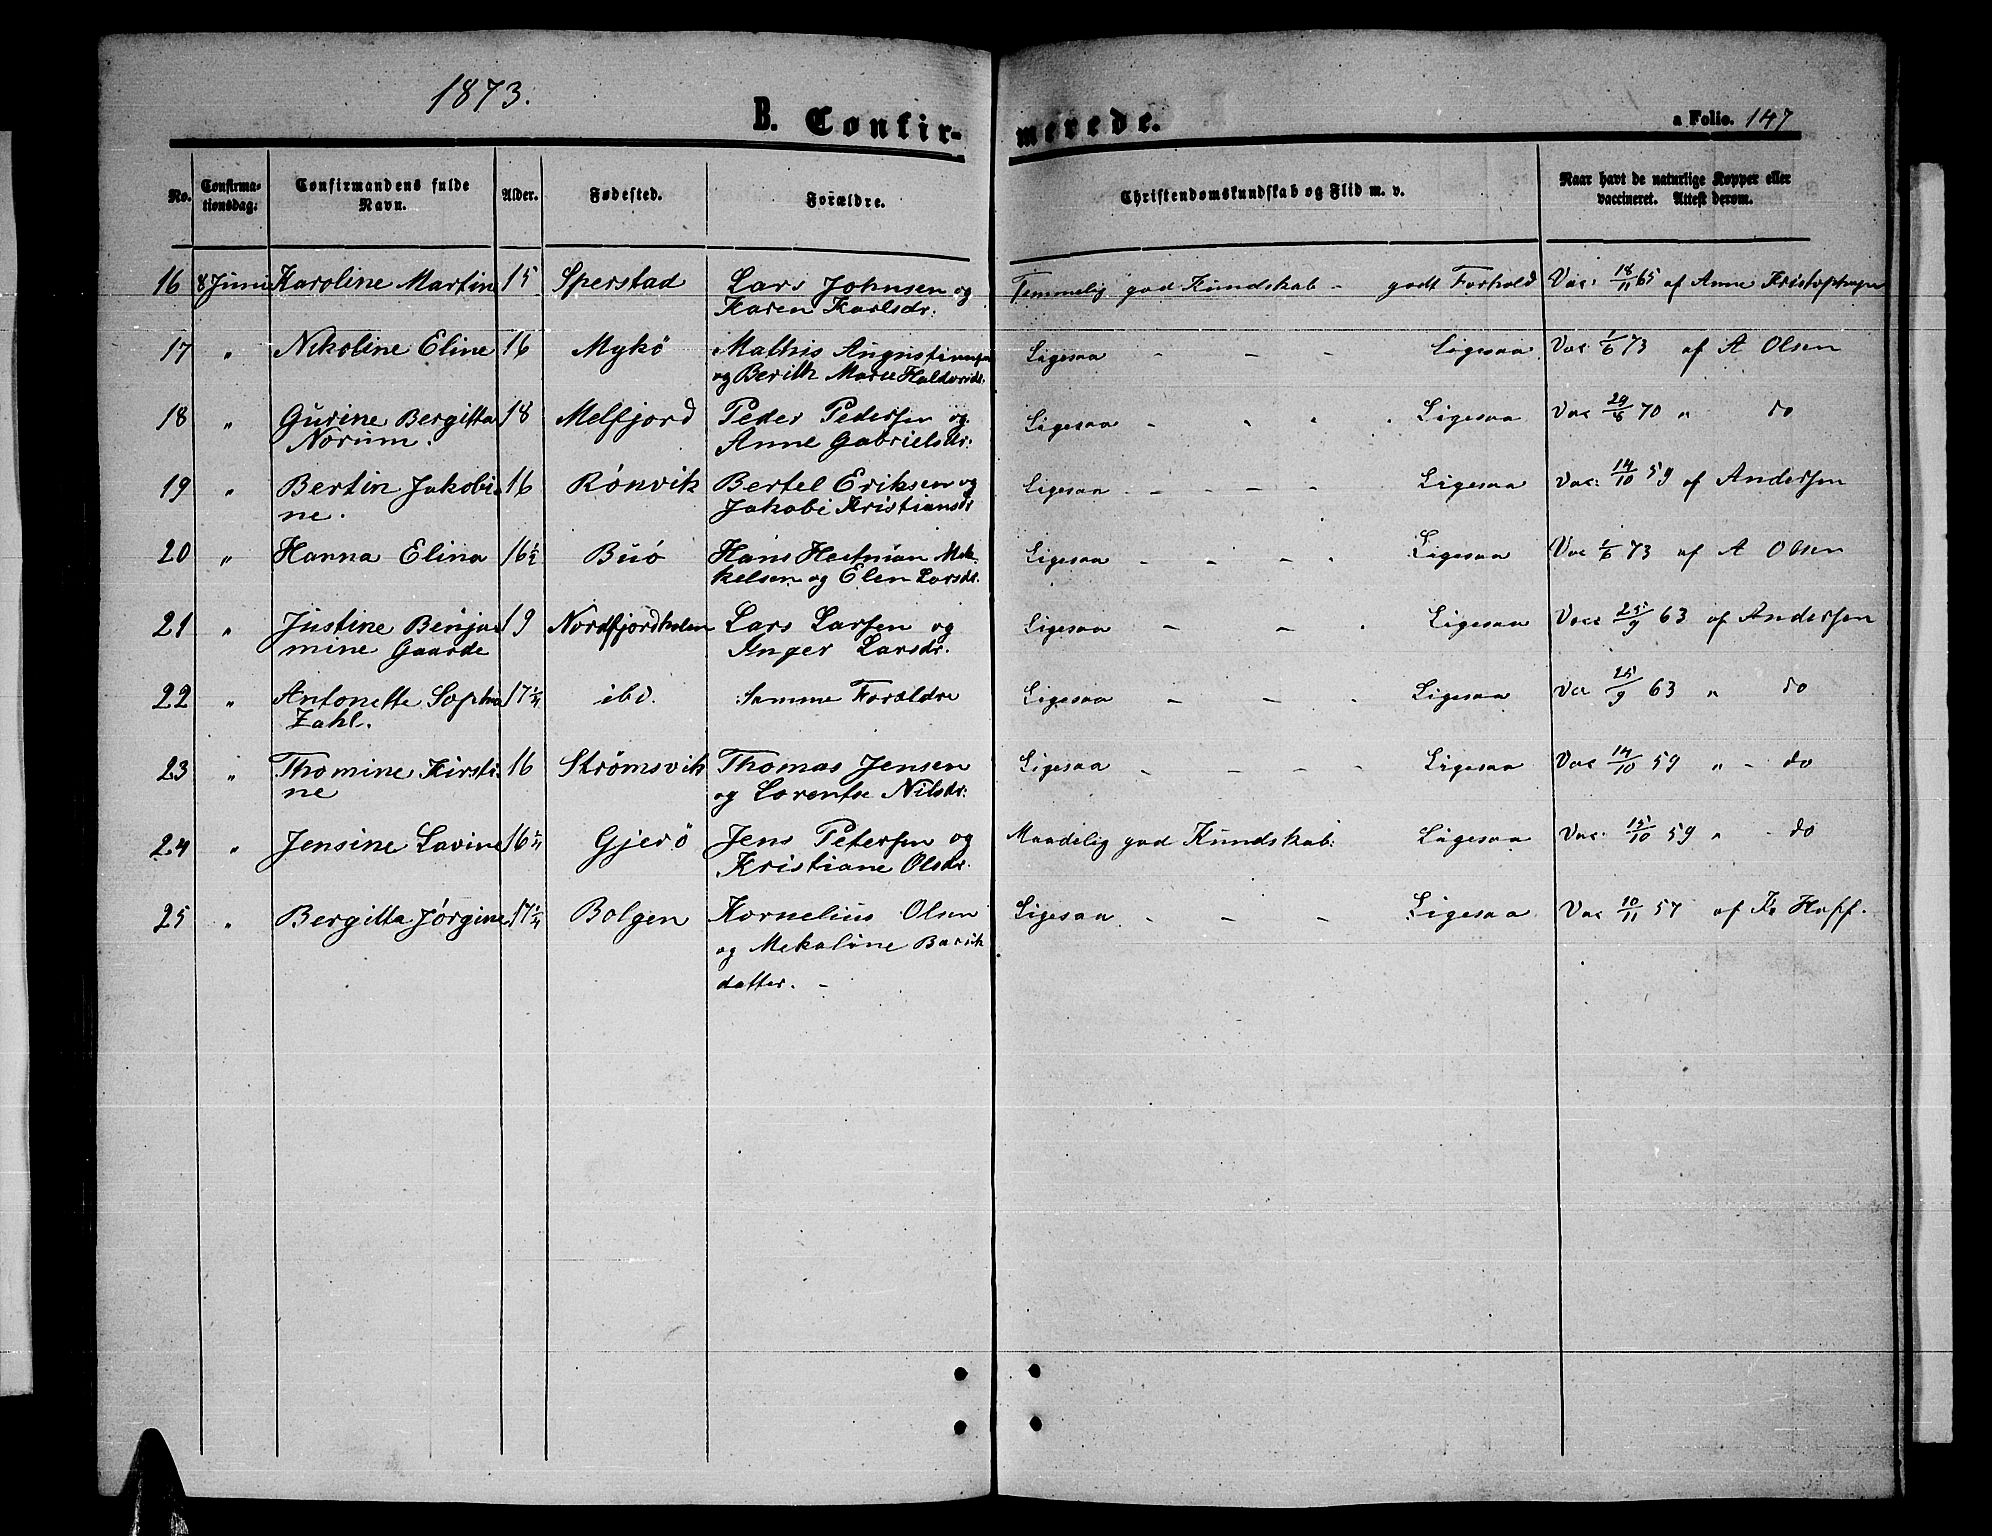 1873.
B. Confirmerede.
a Folio. 147
No. Confirmationsdag: Confirmandens fulde Navn. Alder. Fødested. Forældre. Christendomskundskab og Flid m. v. Naar havt de naturlige Kopper eller vaccineret. Attest derom.
16 8 Juni Karoline Martin 15 Sperstad Lars Johnsen og Temmelig god Kundskab - godt Forhold Vac: 18/11 65 af Anne
Karen Karlsdr:
17 " Nikoline Eline 16 Mykö Mathis Ligesaa - - - Ligesaa Vac 1/6 73 af A Olsen
og Berith Marie
18 " Gurine Bergitta 18 Melfjord Peder Pedersen og Ligesaa - Ligesaa Vac 29/8 70 " do
Norum. Anne Gabrielsdr:
19 " Bertin Jakobi- 16 Rönvik Bertel Eriksen og Ligesaa - - - - Ligesaa Vac: 14/10 59 af Andersen
ne. Jakobi Kristiansdr
20 " Hanna Elina 16 1/2 Buö Hans Hertman Me- Ligesaa - - - Ligesaa Vac 1/6 73 af A Olsen
kelsen og Elen Larsdr.
21 " Justine Benja- 19 Nordfjordholm Lars Larsen og Ligesaa - - Ligesaa Vac 25/9 63 af Andersen
mine Gaarde Inger Larsdr.
22 " Antonette Sophia 17 1/4 ibd. Samme Forældre Ligesaa - - Ligesaa Vac 25/9 63 " do
Zahl.
23 " Thomine Kirsti- 16 Strömsvik Thomas Jensen Ligesaa - - - - Ligesaa Vac 14/10 59 " - do
ne og Lorentse Nilsdr:
24 " Jensine Lavine 16 1/4 Gjerö Jens Petersen og Maadelig god Kundskab: Ligesaa Vac: 15/10 59 " - do
Kristiane Olsdr.
25 " Bergitta Jörgine 17 1/4 Bolgen Kornelius Olsen Ligesaa - - - Ligesaa Vac 10/11 57 af Fr Hoff.
og Mekaline
datter. -